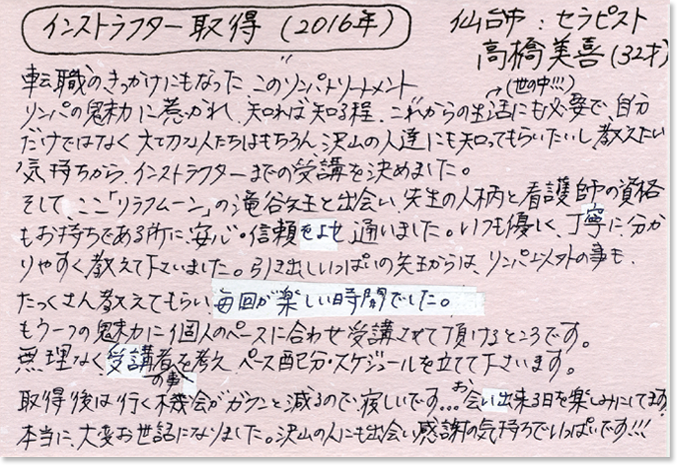 インストラクター取得(2016年)
仙台市:セラピスト
高橋美喜(32才)
転職のきっかけにもなった、このリンパトリートメント
(世の中!!!)
リンパの魅力に惹かれ、知れば知る程、これからの生活にも必要で、自分
だけではなく大切な人たちはもちろん、沢山の人達にも知ってもらいたいし、教えたい
気持ちから、インストラクターまでの受講を決めました。
そして、ここ「リラフムーン」の滝谷先生と出会い、先生の人柄と看護師の資格
もお持ちである所に、安心・信頼をよせ通いました。いつも優しく、丁寧に、分か
りやすく教えて下さいました。引き出しいっぱいの先生からは、リンパ以外の事も、
たっくさん教えてもらい、毎回が楽しい時間でした。
もう一つの魅力に1個人のペースに合わせ受講させて頂けるところです。
無理なく受講者の事を考え、ペース配分・スケジュールを立てて下さいます。
取得後は行く機会がガクンと減るので、寂しいです…。お会い出来る日を楽しみにしてます。
本当に、大変お世話になりました。沢山の人にも出会い感謝の気持ちでいっぱいです!!!